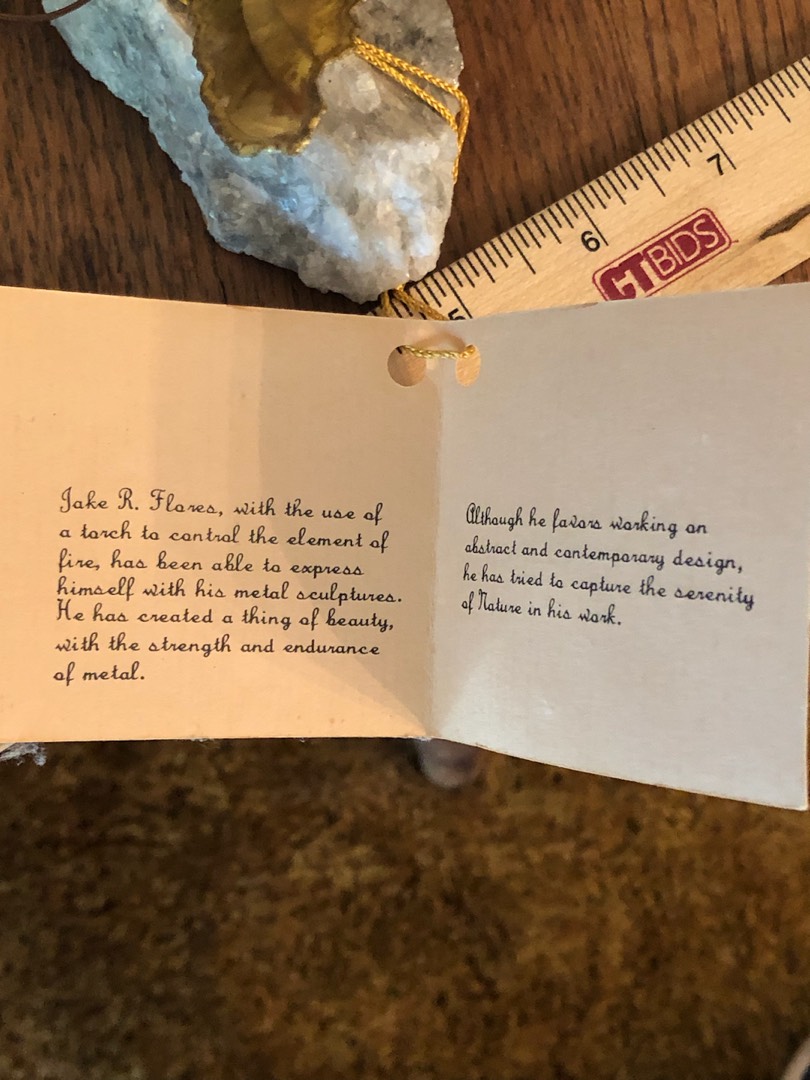 7
6
CTBIDS
5
Jake R. Flores, with the use of
a torch to control the element of
fire, has been able to express
himself with his metal sculptures.
He has created a thing of beauty,
with the strength and endurance
of metal.
Although he favors working on
abstract and contemporary design,
he has tried to capture the serenity
of Nature in his work.